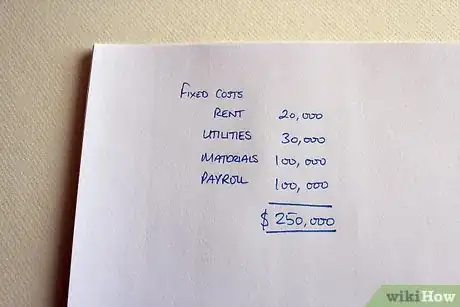 FIXED COSTS
RENT 20,000
UTILITIES 30,000
MATERIALS 100,000
PAYROLL 100,000
$250,000
wikiHow